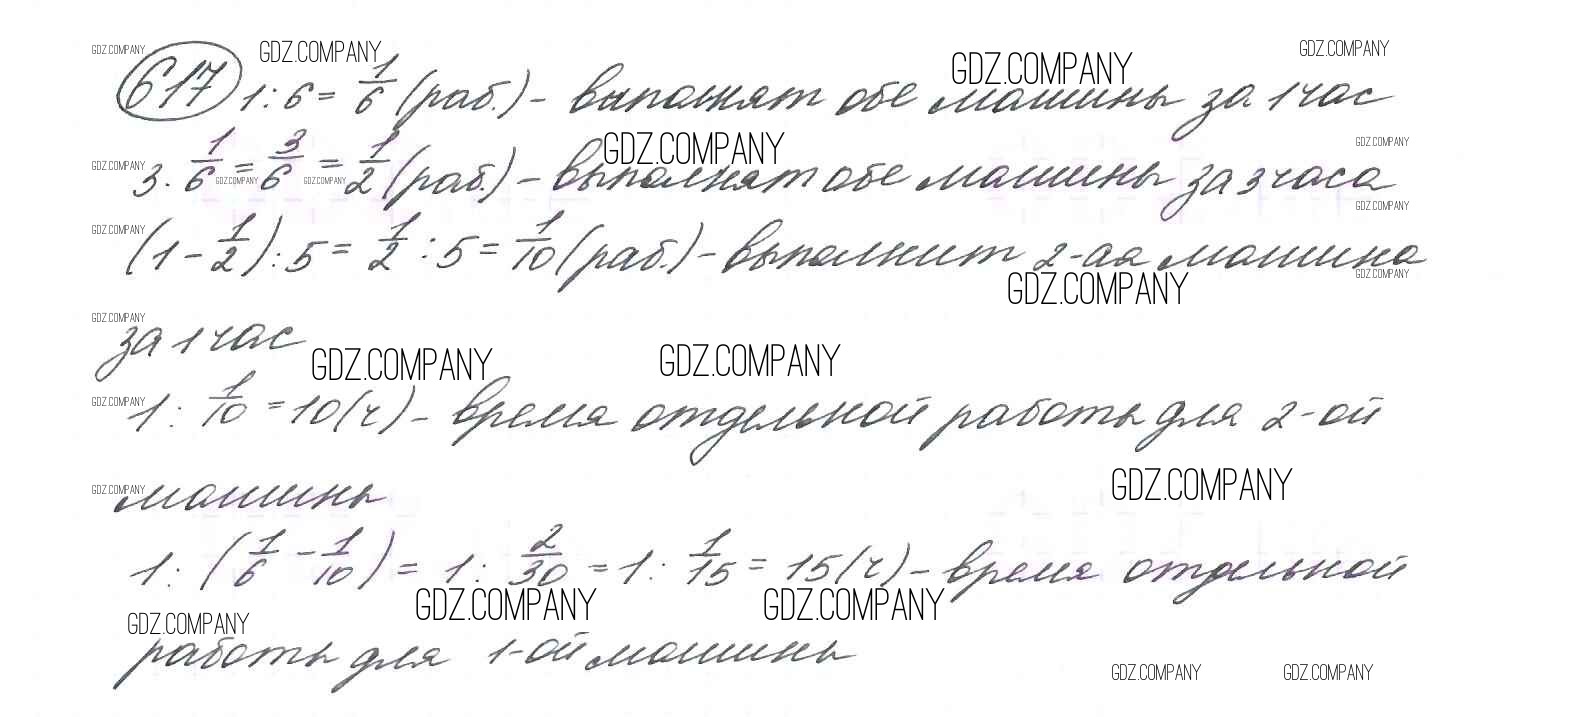 GDZ.COMPANY GDZ.COMPANY GDZ.COMPANY GDZ.COMPANY
617 1 : 6 = 1/6 (раб.) - выполнят обе машины за 1 час
GDZ.COMPANY GDZ.COMPANY GDZ.COMPANY
3 · 1/6 = 3/6 = 1/2 (раб.) - выполнят обе машины за 3 часа
GDZ.COMPANY GDZ.COMPANY GDZ.COMPANY
GDZ.COMPANY
(1 - 1/2) : 5 = 1/2 : 5 = 1/10 (раб.) - выполнит 2-ая машина
GDZ.COMPANY GDZ.COMPANY
GDZ.COMPANY
за 1 час
GDZ.COMPANY GDZ.COMPANY
GDZ.COMPANY
1 : 1/10 = 10 (ч) - время отдельной работы для 2-ой
GDZ.COMPANY GDZ.COMPANY
машины
1 : (1/6 - 1/10) = 1 : 2/30 = 1 : 1/15 = 15 (ч) - время отдельной
GDZ.COMPANY GDZ.COMPANY GDZ.COMPANY
работы для 1-ой машины
GDZ.COMPANY GDZ.COMPANY